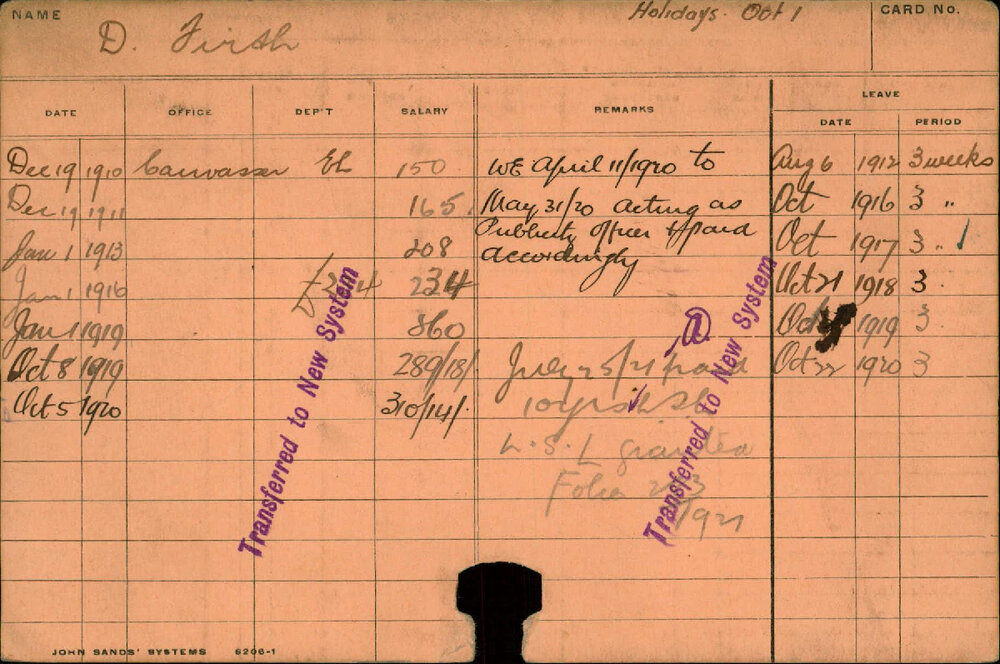 NAME
D. Firth
Holidays. Oct 1
CARD No.
DATE OFFICE DEP'T SALARY REMARKS LEAVE
DATE PERIOD
Dec 19 1910 Canvasser EL 150 WE April 11/1920 to Aug 6 1912 3 weeks
Dec 19 1911 165 May 31/20 acting as Oct 1916 3 "
Jan 1 1913 208 Publicity officer & paid Oct 1917 3 "
accordingly
Jan 1 1916 234 Oct 21 1918 3
Jan 1 1919 260 Oct 1919 3
Oct 8 1919 289/18/ July 25/21 paid Oct 22 1920 3
Oct 5 1920 310/14/.
L.S.L granted
Folio
1921
Transferred to New System
Transferred to New System
JOHN SANDS' SYSTEMS 6206-1